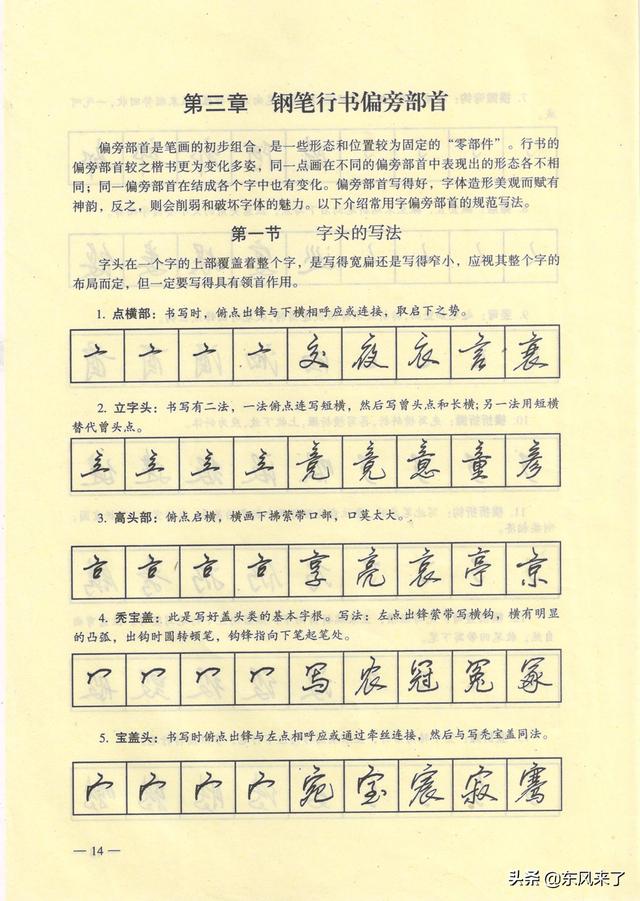 第三章 钢笔行书偏旁部首
偏旁部首是笔画的初步组合，是一些形态和位置较为固定的“零部件”。行书的
偏旁部首较之楷书更为变化多姿，同一点画在不同的偏旁部首中表现出的形态各不相
同；同一偏旁部首在结成各个字中也有变化。偏旁部首写得好，字体造形美观而赋有
神韵，反之，则会削弱和破坏字体的魅力。以下介绍常用字偏旁部首的规范写法。
第一节 字头的写法
字头在一个字的上部覆盖着整个字，是写得宽扁还是写得窄小，应视其整个字的
布局而定，但一定要写得具有领首作用。
1. 点横部：书写时，俯点出锋与下横相呼应或连接，取启下之势。
亠 亠 亠 亠 交 夜 衣 言 衰
2. 立字头：书写有二法，一法俯点连写短横，然后写曾头点和长横；另一法用短横
替代曾头点。
立 立 立 立 竟 竟 意 童 彦
3. 高头部：俯点启横，横画下拂萦带口部，口莫太大。
享 亮 哀 亭 京
4. 秃宝盖：此是写好盖头类的基本字根。写法：左点出锋萦带写横钩，横有明显
的凸弧，出钩时圆转顿笔，钩锋指向下笔起笔处。
冖 冖 冖 冖 写 农 冠 冤 冢
5. 宝盖头：书写时俯点出锋与左点相呼应或通过牵丝连接，然后与写秃宝盖同法。
宀 宀 宀 宀 宛 宝 宸 寂 骞
— 14 —
头条 @东风来了